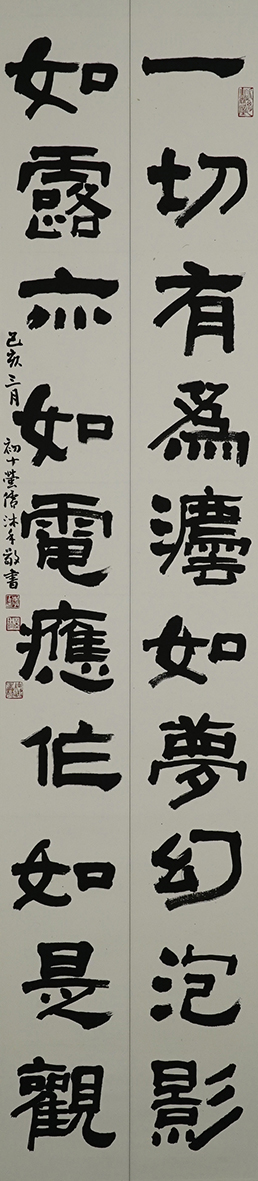 一切有為灋如夢幻泡影
如露亦如電應作如是觀
己亥三月初十瑩清沐手敬書